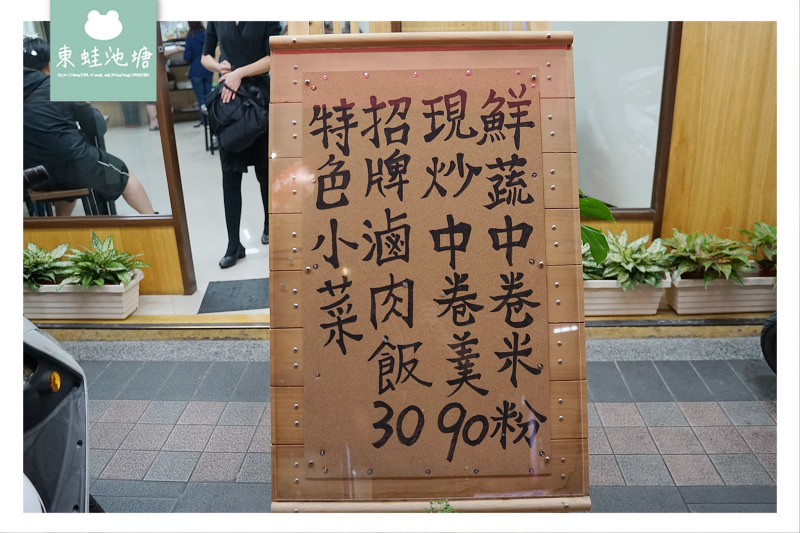 東蛙池塘
鮮蔬中卷米粉
現炒中卷羹90
招牌滷肉飯30
特色小菜